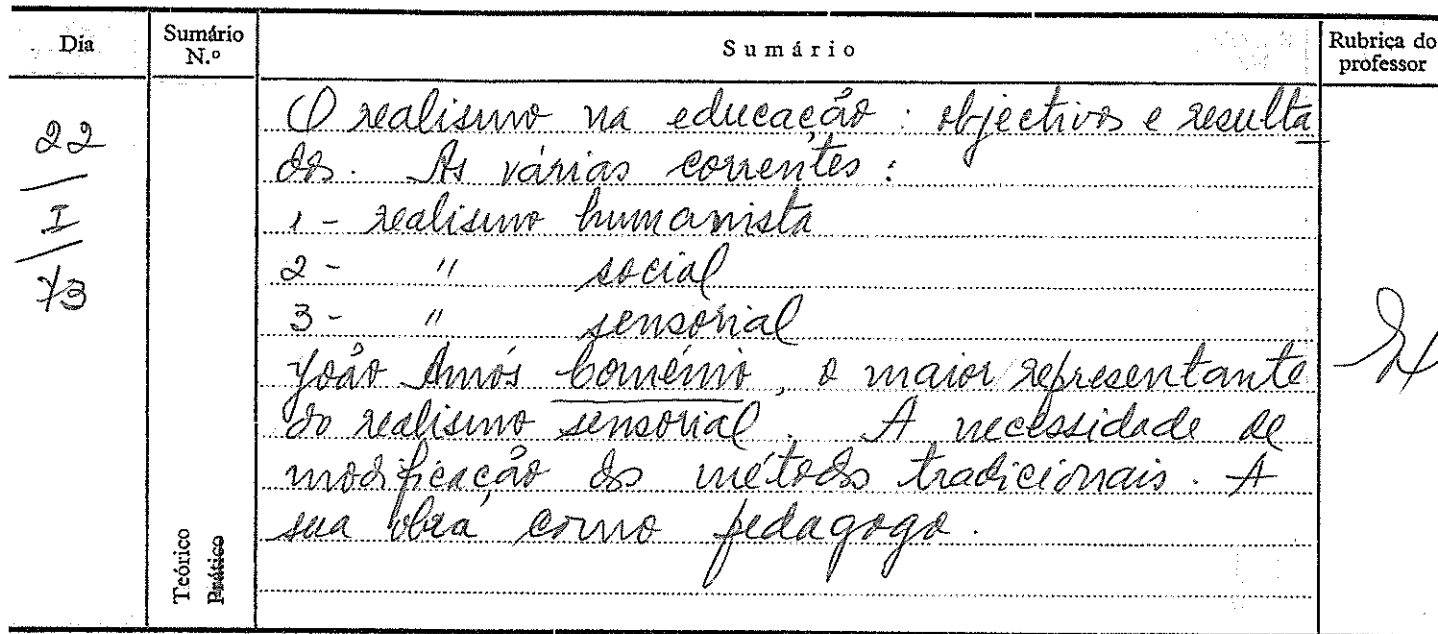 Dia
Sumário N.º
Sumário
Rubrica do professor
22
I
73
O realismo na educação : objectivos e resulta
dos. As várias correntes :
1 - realismo humanista
2 - " social
3 - " sensorial
João Amós Coménio, o maior representante
do realismo sensorial. A necessidade de
modificação dos métodos tradicionais. A
sua obra como pedagogo.
Teórico
Prático